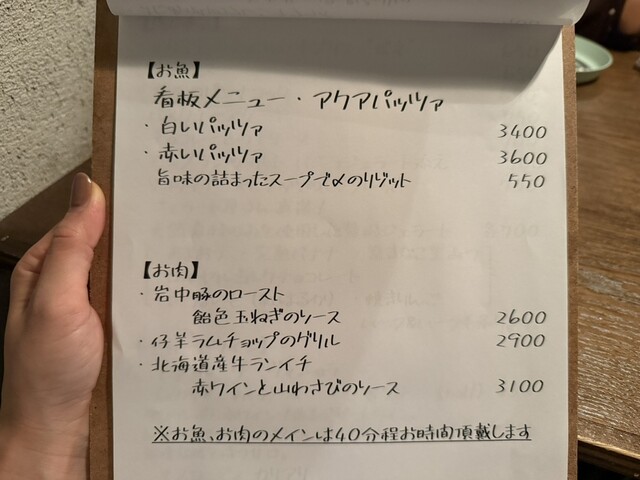 【お魚】
看板メニュー・アクアパッツァ
・白いパッツァ 3400
・赤いパッツァ 3600
旨味の詰まったスープで〆のリゾット 550
【お肉】
・岩中豚のロースト
飴色玉ねぎのソース 2600
・仔羊ラムチョップのグリル 2900
・北海道産牛ランイチ
赤ワインと山わさびのソース 3100
※お魚、お肉のメインは40分程お時間頂戴します